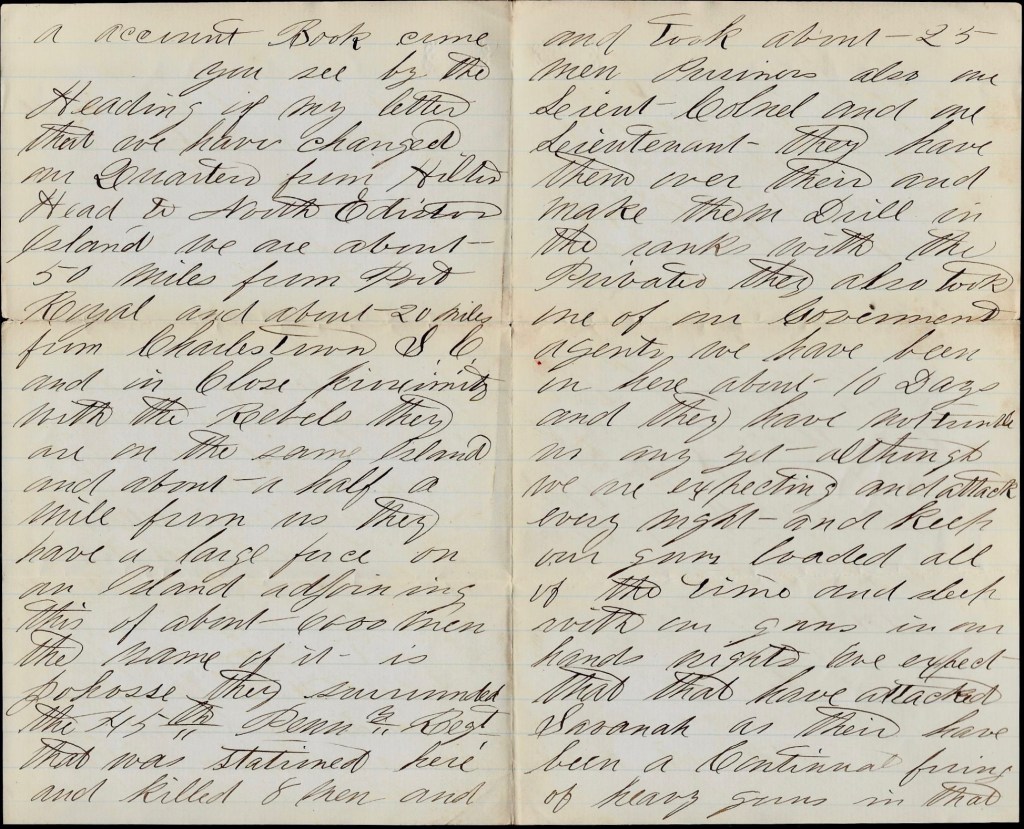 a account Book came
you see by the
Heading of my letter
that we have changed
our Quarters from Hilton
Head to North Edistor
Island we are about
50 miles from Port
Royal and about 20 miles
from Charlestown S. C.
and in Close proximity
with the Rebels they
are on the same Island
and about a half a
mile from us they
have a large force on
an Island adjoining
this of about 6000 men
the name of it is
they surrounded
the 45th Penn Regt
that was stationed here
and killed 8 men and
and Took about 25
men Prisiners also one
Leient Colnel and one
Leientenant they have
them over their and
make them Drill in
the ranks with the
Privates they also took
one of our Goverment
agents we have been
in here about 10 Days
and they have not
us any yet althought
we are expecting and attack
every night and keep
our guns loaded all
of the time and sleep
with our guns in our
hands nights we expect
that that have attacked
Savanah as their have
been a Continual firing
of heavy guns in that